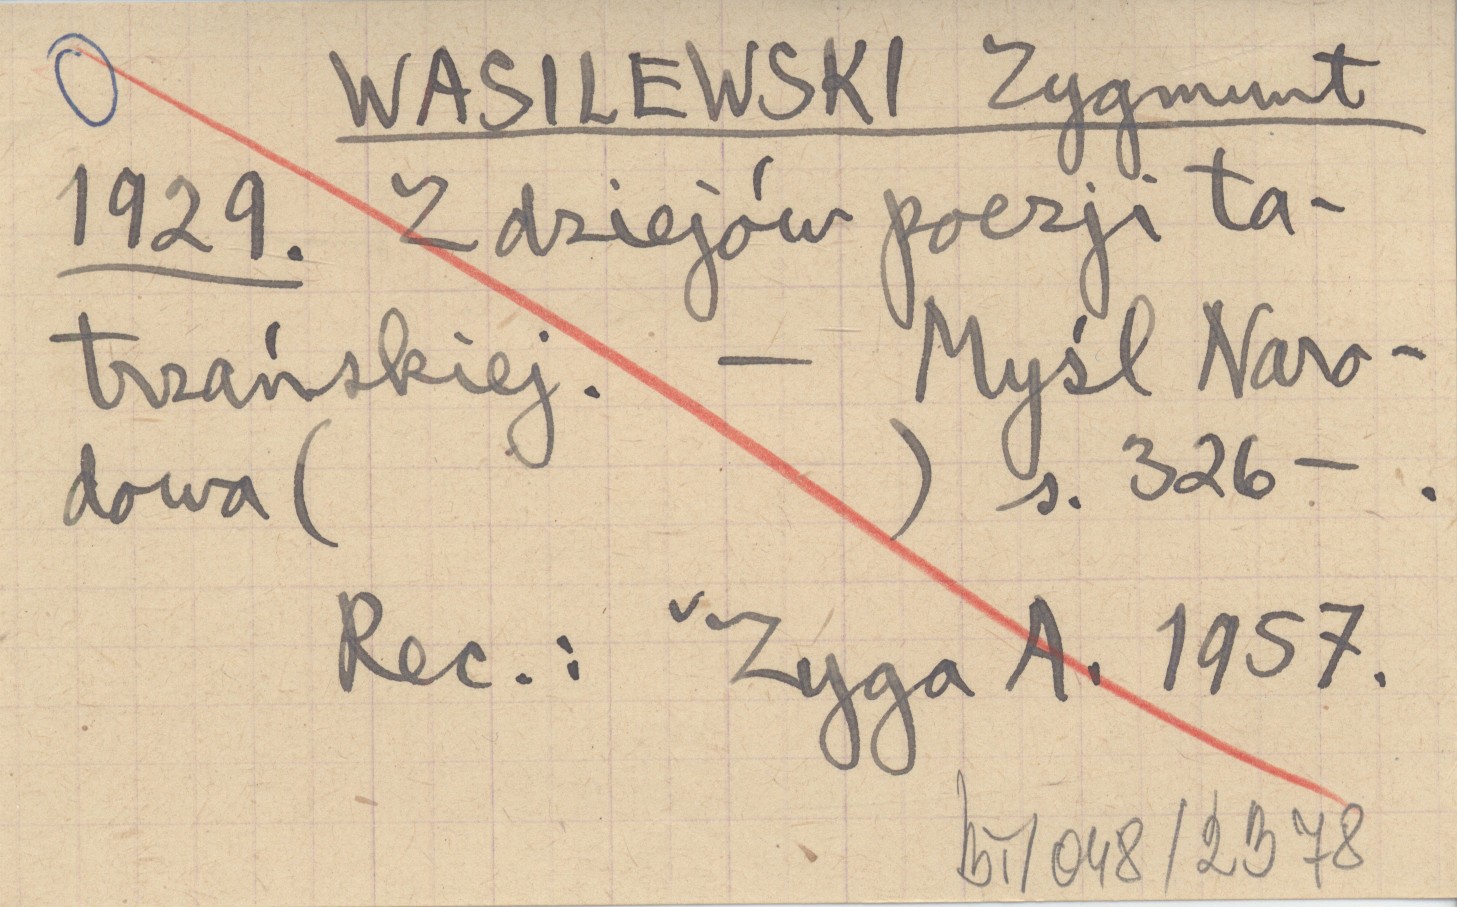 WASILEWSKI Zygmunt
1929. Z dziejów poezji ta-
trzańskiej. — Myśl Naro-
dowa (                    ) s. 326— .
Rec.: Zyga A. 1957.
BT/048/2378